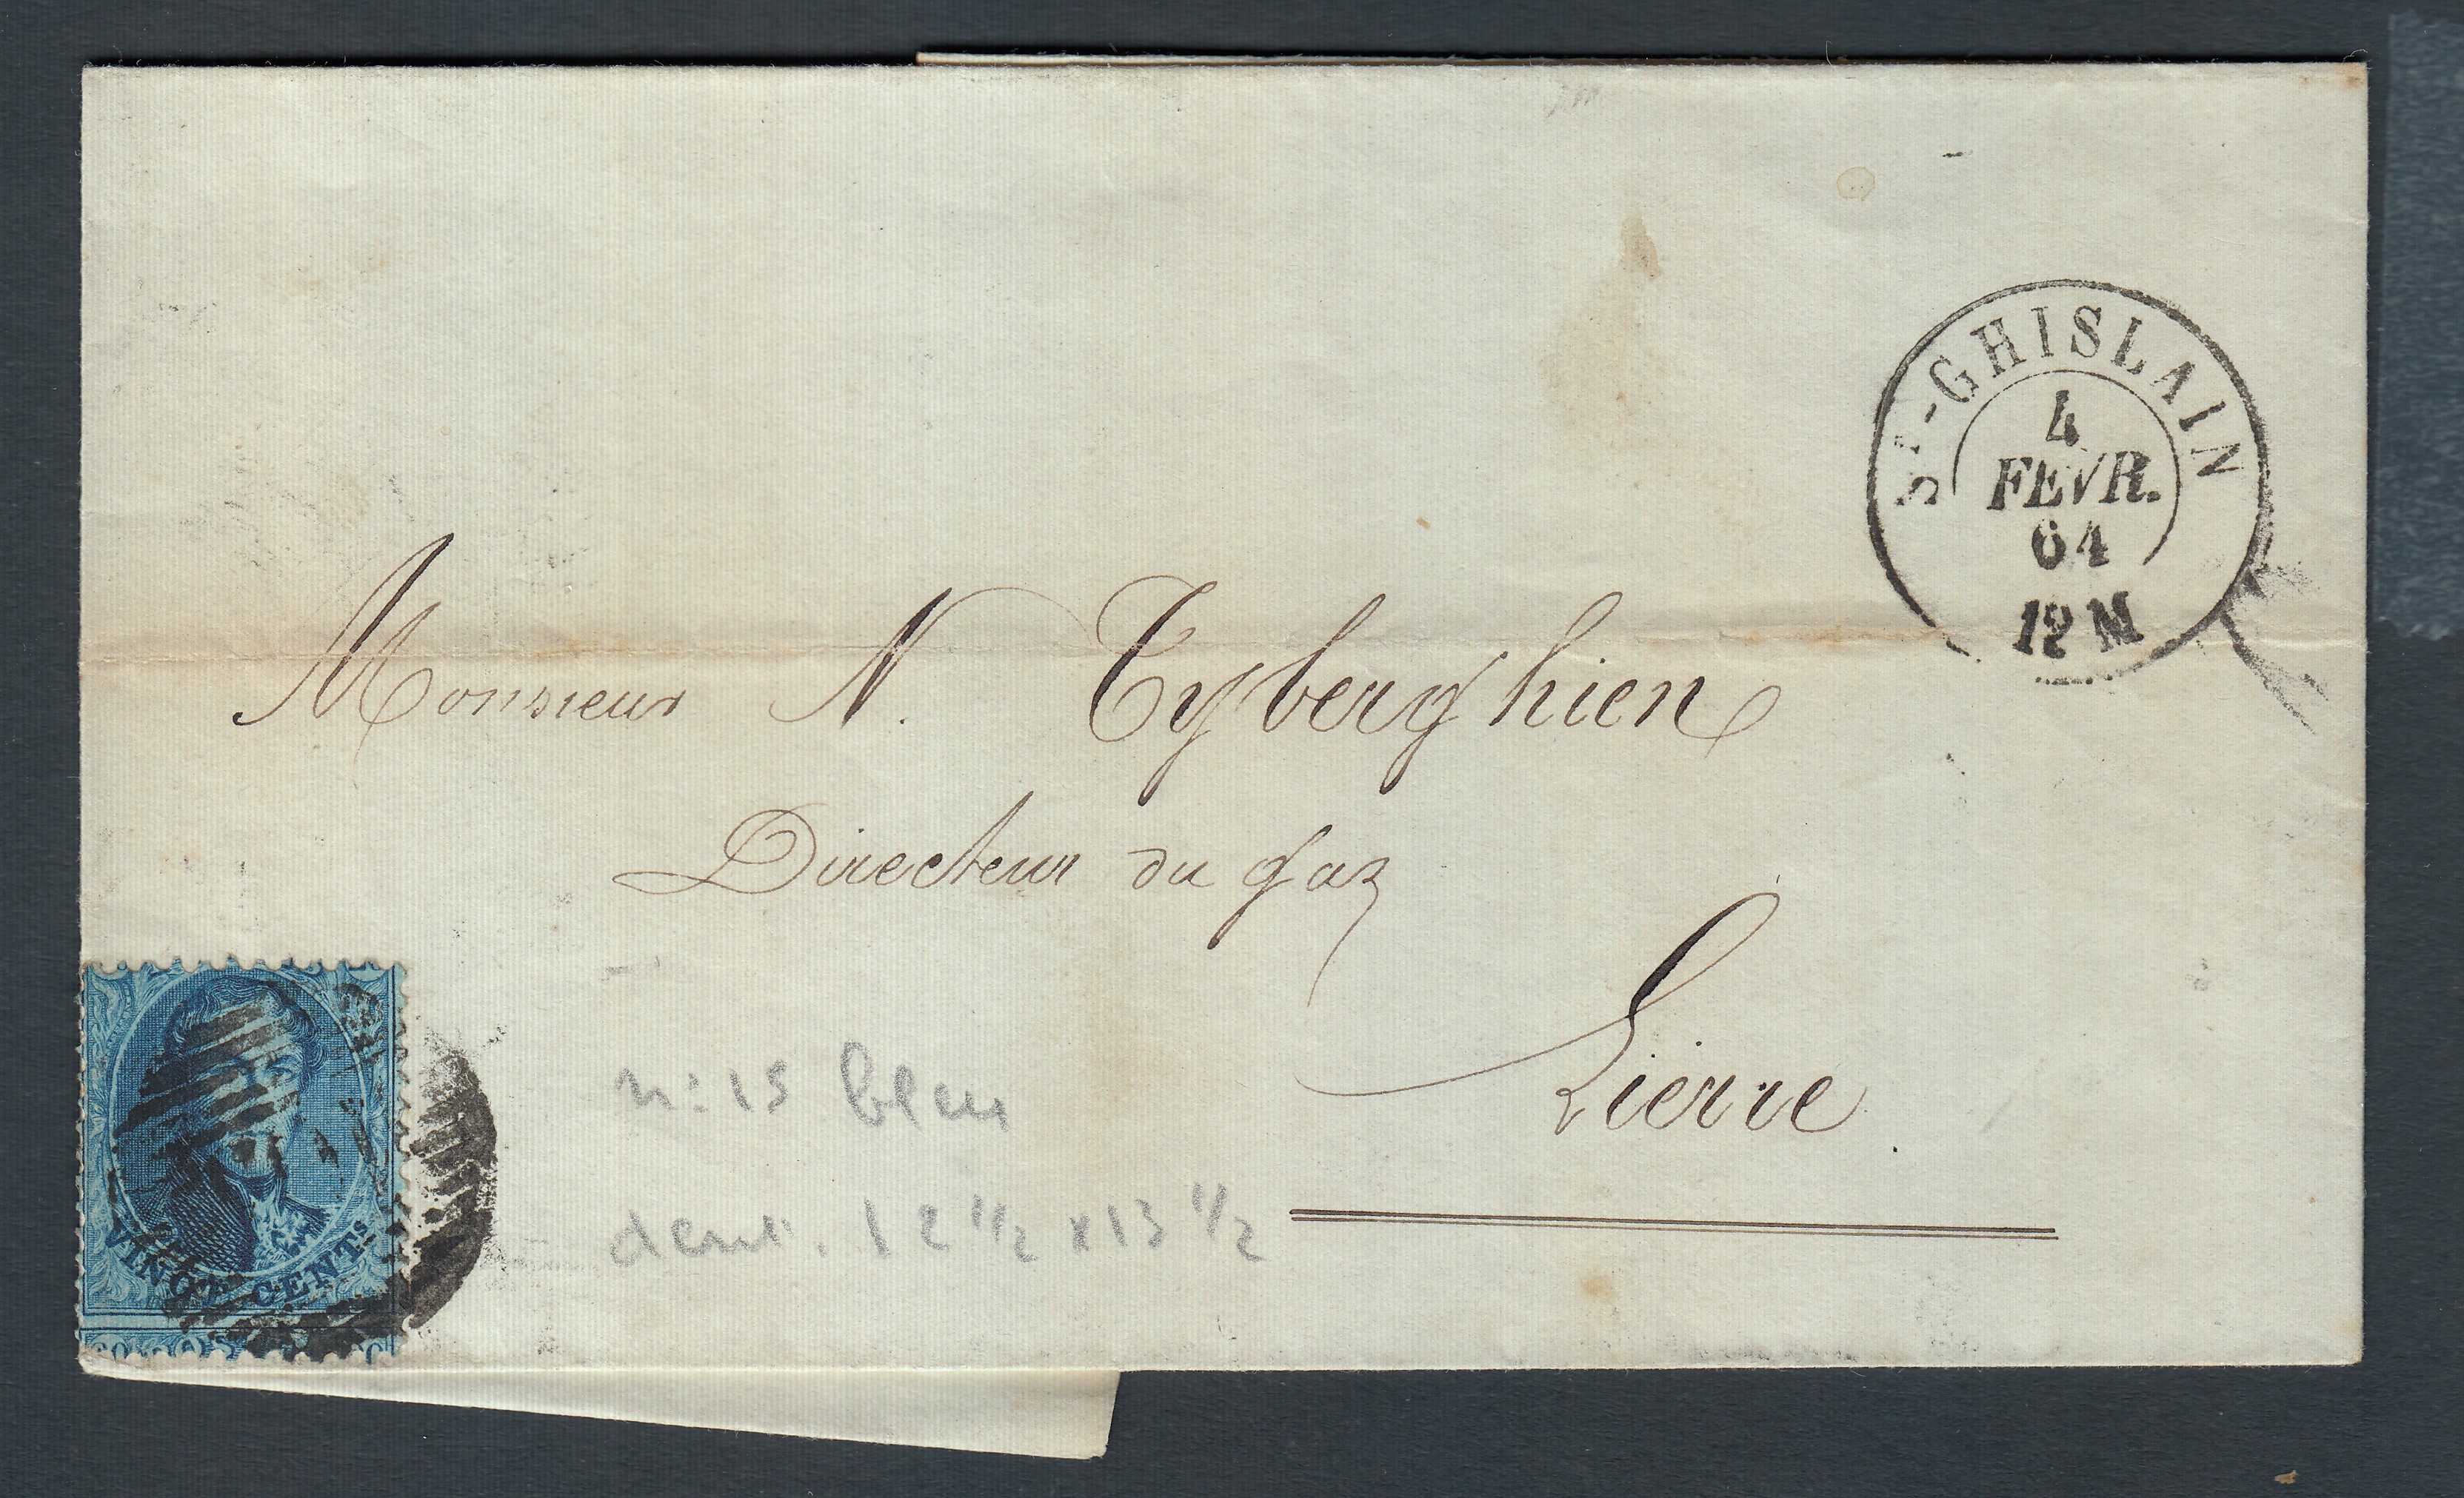 St-GHISLAIN
4
FEVR.
64
12 M
Monsieur N. Tyberghien
Directeur du Gaz
Lierre
n: 15 bleu
dent. 12 1/2 x 13 1/2
VINGT CENTS